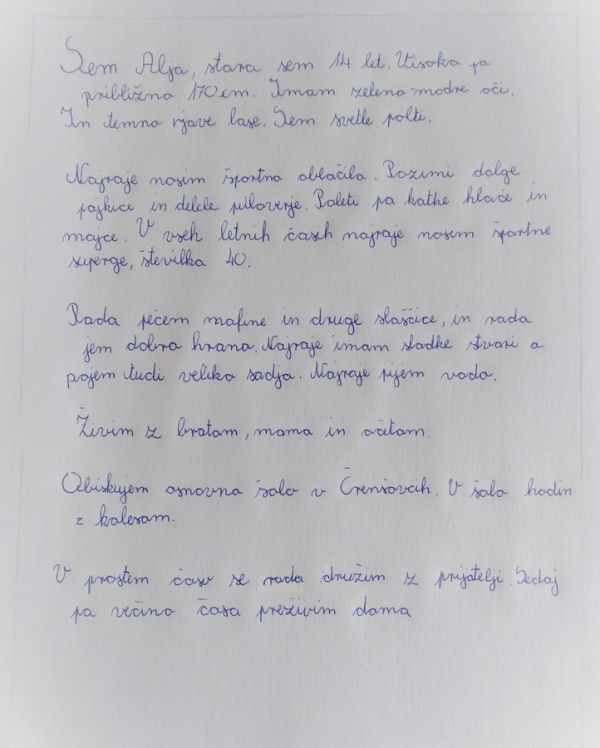 Sem Alja, stara sem 14 let. Visoka pa
približno 170 cm. Imam zeleno modre oči.
In temno rjave lase. Sem svetle polti.
Najraje nosim športna oblačila. Pozimi dolge
pajkice in debele puloverje. Poleti pa kratke hlače in
majce. V vseh letnih časih najraje nosim športne
superge, številka 40.
Rada pečem mafine in druge slaščice, in rada
jem dobro hrano. Najraje imam sladke stvari a
pojem tudi veliko sadja. Najraje pijem vodo.
Živim z bratom, mamo in očetom.
Obiskujem osnovno šolo v Črenšovcih. V šolo hodim
z kolesom.
V prostem času se rada družim z prijatelji. Sedaj
pa večino časa preživim doma